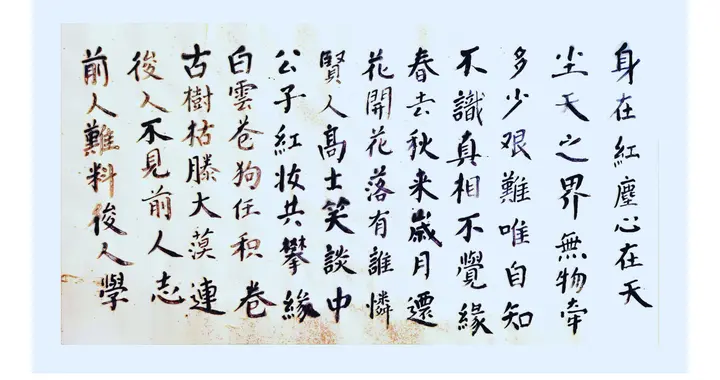 身在紅塵心在天
尘天之界無物牵
多少艰難唯自知
不識真相不覺緣
春去秋来歲月遷
花開花落有誰憐
賢人高士笑談中
公子紅妆共攀緣
白雲苍狗任积卷
古樹枯藤大漠連
後人不見前人志
前人難料後人學